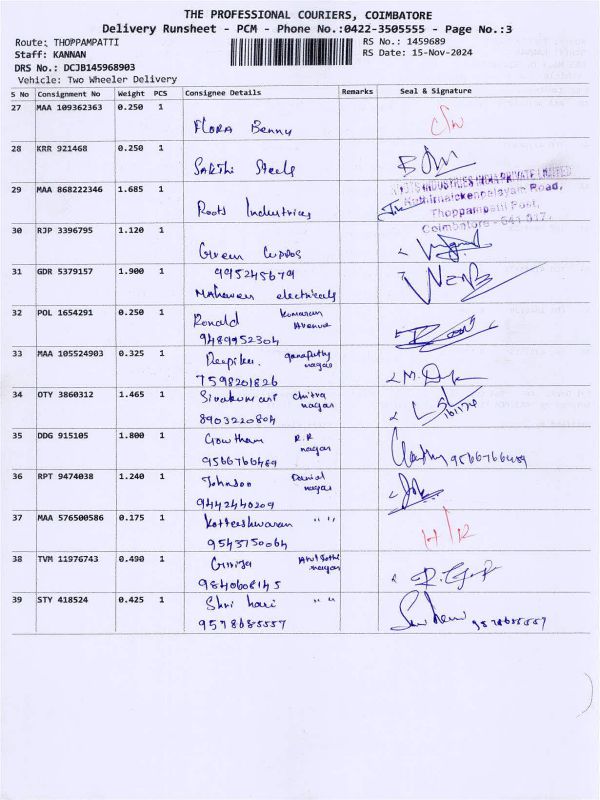 THE PROFESSIONAL COURIERS, COIMBATORE
Delivery Runsheet - PCM - Phone No.:0422-3505555 - Page No.:3
Route: THOPPAMPATTI
RS No.: 1459689
Staff: KANNAN
RS Date: 15-Nov-2024
DRS No.: DCJB145968903
Vehicle: Two Wheeler Delivery
S No Consignment No Weight PCS Consignee Details Remarks Seal & Signature
27 MAA 109362363 0.250 1
FLORA Benny
28 KRR 921468 0.250 1
SARthi Steels
29 MAA 868222346 1.685 1
INDUSTRIES INDIA PRIVATE LIMITED
Kathirnaickenpalayam Road,
Roots Industries
Thoppampatti Post,
Coimbatore - 641 017.
30 RJP 3396795 1.120 1
Green
31 GDR 5379157 1.900 1
995245679
electricals
32 POL 1654291 0.250 1
Ronald Kumaran Avenue
9489952304
33 MAA 105524903 0.325 1
Deepika. ganapathy nagar
7598201826
M.
34 OTY 3860312 1.465 1
Sivakumari Chitra nagar
8903220804
35 DDG 915105 1.800 1
Gowtham R.R nagar
9566766489
9566766489
36 RPT 9474038 1.240 1
Johnson Danial nagar
9442440209
37 MAA 576500586 0.175 1
Kotteeshwaran " "
9543750064
38 TVM 11976743 0.490 1
Girija nagar
9840608145
39 STY 418524 0.425 1
Shri hari " "
9578685557
9578685557